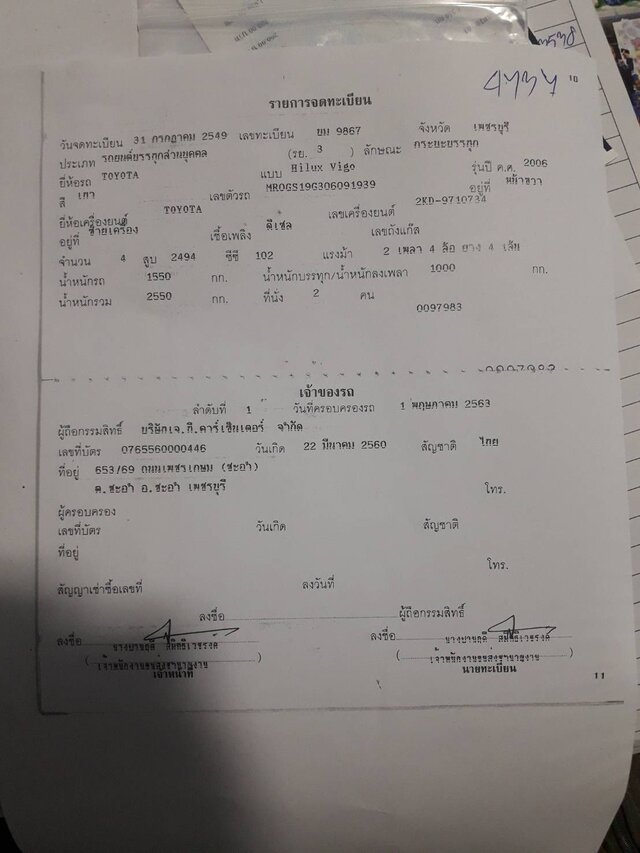 10
รายการจดทะเบียน
วันจดทะเบียน 31 กรกฎาคม 2549 เลขทะเบียน บม 9867 จังหวัด เพชรบุรี
ประเภท รถยนต์บรรทุกส่วนบุคคล (รย. 3 ) ลักษณะ กระบะบรรทุก
ยี่ห้อรถ TOYOTA แบบ Hilux Vigo รุ่นปี ค.ศ. 2006
สี เทา เลขตัวรถ MR0GS19G306091939 อยู่ที่ หน้าขวา
ยี่ห้อเครื่องยนต์ TOYOTA เลขเครื่องยนต์ 2KD-9710734
อยู่ที่ ซ้ายเครื่อง เชื้อเพลิง ดีเซล เลขถังแก๊ส
จำนวน 4 สูบ 2494 ซีซี 102 แรงม้า 2 เพลา 4 ล้อ ยาง 4 เส้น
น้ำหนักรถ 1550 กก. น้ำหนักบรรทุก/น้ำหนักลงเพลา 1000 กก.
น้ำหนักรวม 2550 กก. ที่นั่ง 2 คน
0097983
เจ้าของรถ
ลำดับที่ 1 วันที่ครอบครองรถ 1 พฤษภาคม 2563
ผู้ถือกรรมสิทธิ์ บริษัทเจ.ที.คาร์เซ็นเตอร์ จำกัด
เลขที่บัตร 0765560000446 วันเกิด 22 มีนาคม 2560 สัญชาติ ไทย
ที่อยู่ 653/69 ถนนเพชรเกษม (ชะอำ)
ต.ชะอำ อ.ชะอำ เพชรบุรี
โทร.
ผู้ครอบครอง
เลขที่บัตร วันเกิด สัญชาติ
ที่อยู่
โทร.
สัญญาเช่าซื้อเลขที่ ลงวันที่
ลงชื่อ ผู้ถือกรรมสิทธิ์
ลงชื่อ ลงชื่อ
(เจ้าพนักงานขนส่งชำนาญงาน) (เจ้าพนักงานขนส่งชำนาญงาน)
เจ้าหน้าที่ นายทะเบียน
11